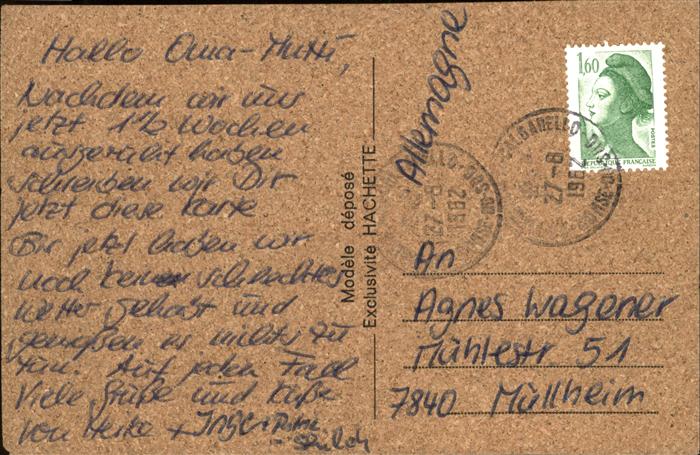 Hallo Oma-Mutti,
Nachdem wir uns
jetzt 1½ Wochen
ausgeruht haben
schreiben wir Dir
jetzt diese Karte
Bis jetzt haben wir
noch kein schlechtes
Wetter gehabt und
genießen es nichts zu
tun. Auf jeden Fall
Viele Grüße und Küße
von Heike + Inge +
Modèle déposé
Exclusivité HACHETTE
Allemagne
1,60
POSTES
REPUBLIQUE FRANÇAISE
27-8
1982
An
Agnes Wagener
Mühlestr 51
7840 Müllheim